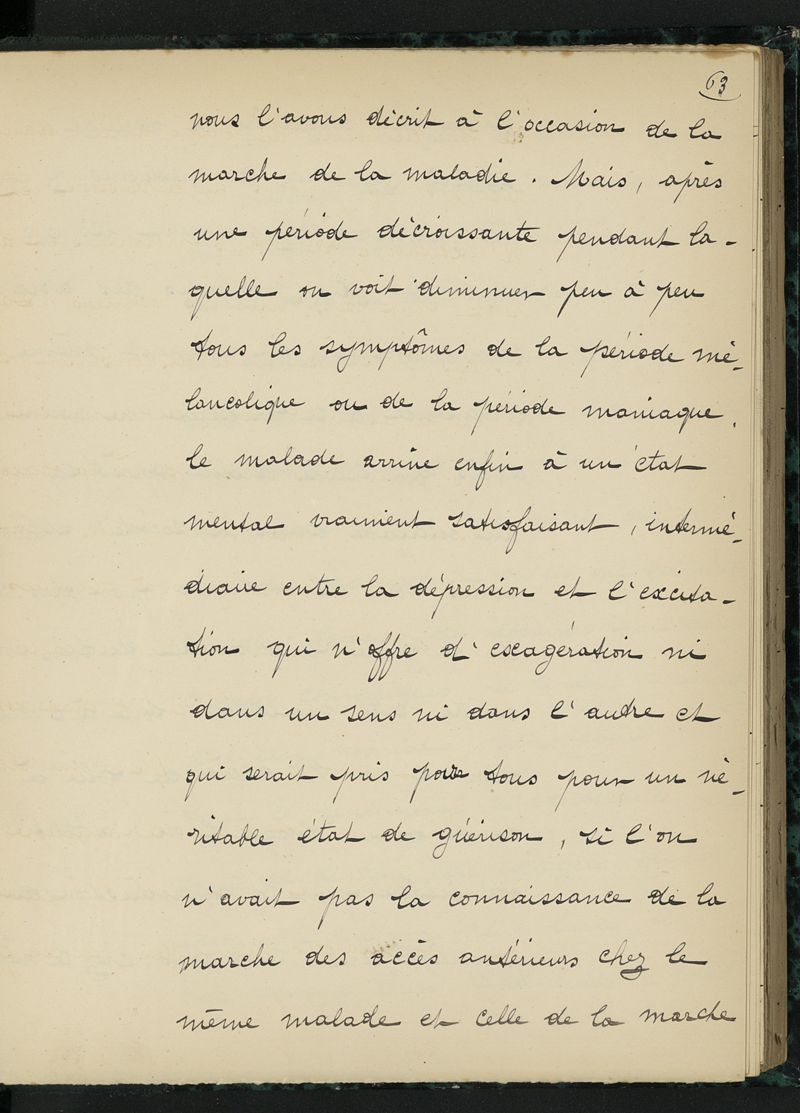 63
nous l'avons décrit à l'occasion de la
marche de la maladie. Mais, après
une période décroissante pendant la-
quelle on voit diminuer peu à peu
tous les symptômes de la période mé-
lancolique ou de la période maniaque,
le malade arrive enfin à un état
mental vraiment satisfaisant, intermé-
diaire entre la dépression et l'excita-
tion qui n'offre d'exagération ni
dans un sens ni dans l'autre et
qui serait pris par tous pour un vé-
ritable état de guérison, si l'on
n'avait pas la connaissance de la
marche des accès antérieurs chez le
même malade et celle de la marche